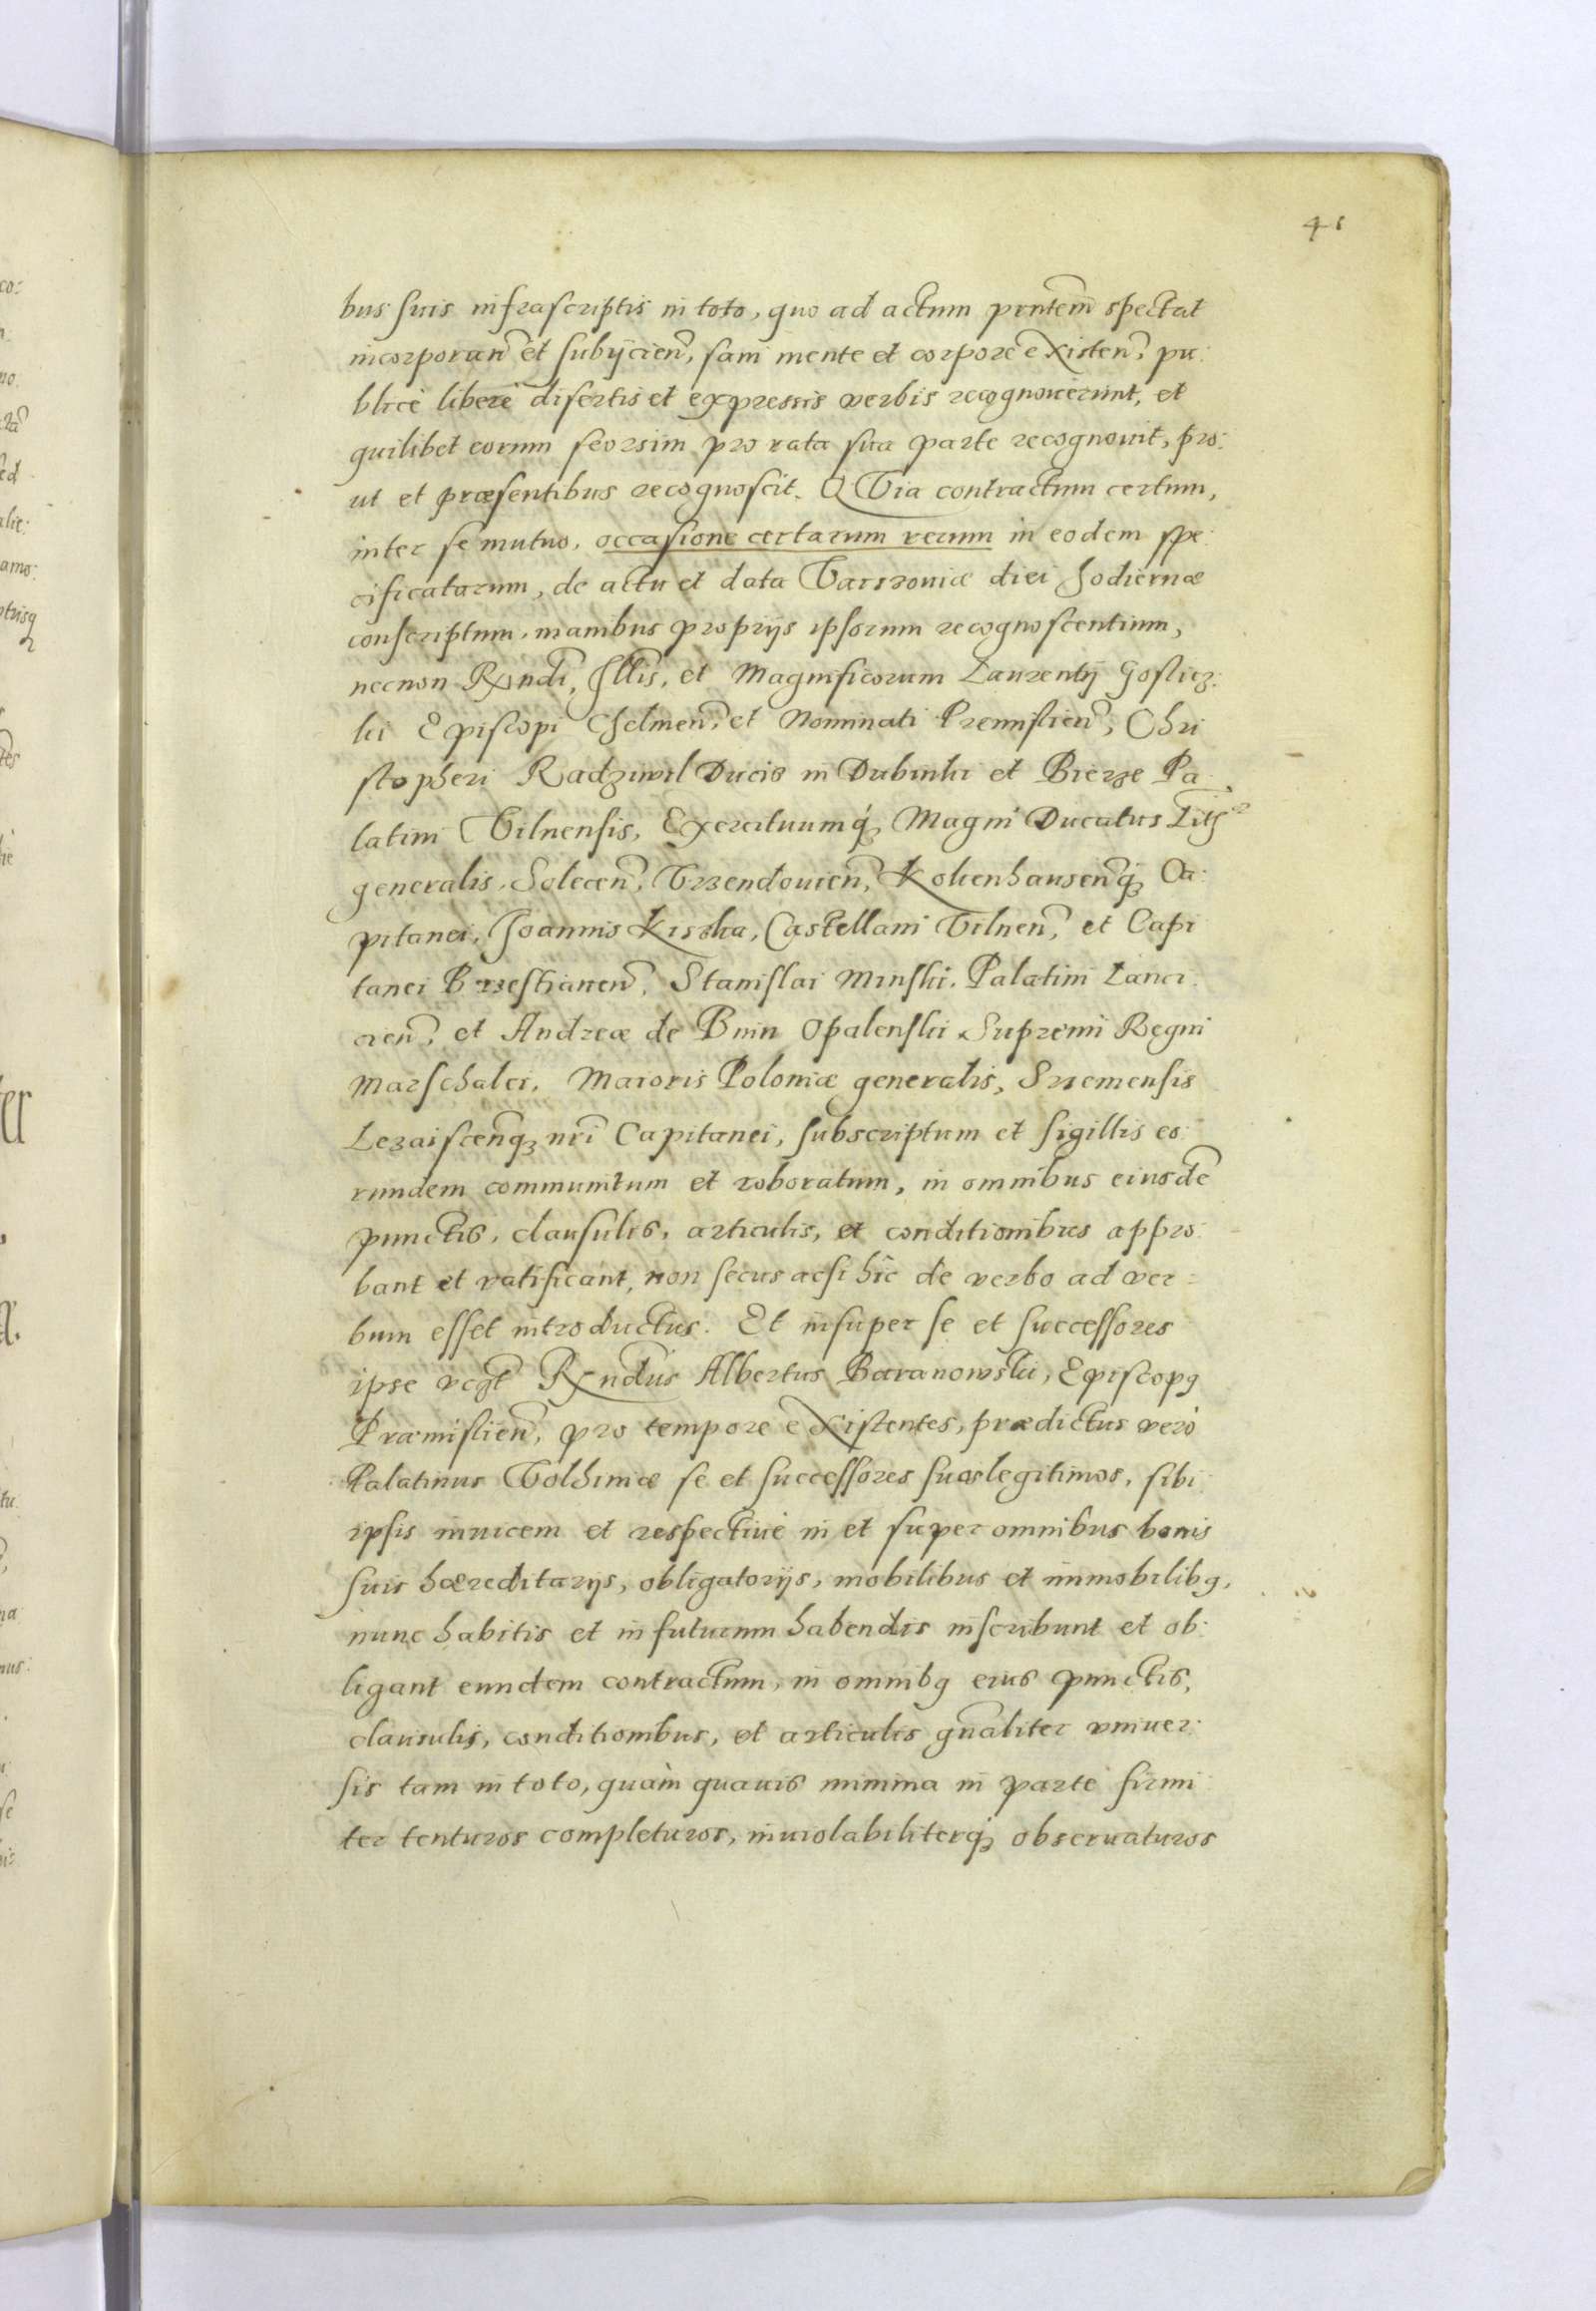 41
bus suis infrascriptis in toto, quo ad actum pñtem spectat
incorporan̄ et subijcien̄, sani mente et corpore existen̄, pu:
blicè liberè disertis et expressis verbis recognoverunt, et
quilibet eorum seorsim pro rata sua parte recognovit, pro:
ut et præsentibus recognoscit. QVia contractum certum,
inter se mutuo, occasione certarum rerum in eodem spe:
cificatarum, de actu et data Varsoviæ diei hodiernæ
conscriptum, manibus proprijs ipsorum recognoscentium,
necnon Rx̄ndi, Illīs, et Magnificorum Laurentij Goslicz:
ki Episcopi Chelmen̄, et Nominati Premislien̄, Chri
stopheri Radziwil Ducis in Dubinki et Bierze Pa:
latini Vilnensis, Exercituumq́; Magni Ducatus Lith
generalis, Solecen̄, Vrzendovien̄, Kokenhausen̄q́; Ca:
pitanei, Joannis Kiszka, Castellani Vilnen̄, et Capi
tanei Brzestianen̄, Stanislai Minski, Palatini Lanci
cien̄, et Andreæ de Bnin Opalenski Supremi Regni
Marschalci, Maioris Poloniæ generalis, Sremensis
Lezaiscen̄q; nr̄i Capitanei, subscriptum et sigillis eo:
rundem communitum et roboratum, in omnibus eiusdē
punctis, clausulis, articulis, et conditionibus appro:
bant et ratificant, non secus acsi hîc de verbo ad ver:
bum esset introductus. Et insuper se et successores
ipse Rx̄ndūs Albertus Baranowski, Episcopꝯ
Præmislien̄, pro tempore existentes, prædictus verò
Palatinus Volhiniæ se et successores suos legitimos, sibi
ipsis invicem et respectiuè in et super omnibus bonis
suis hæreditarijs, obligatorijs, mobilibus et immobilibꝯ,
nunc habitis et in futurum habendis inscribunt et ob:
ligant eundem contractum, in omnibꝯ eius punctis,
clausulis, conditionibus, et articulis gñaliter vniuer:
sis tam in toto, quàm quauis minima in parte firmi
ter tenturos completuros, inviolabiliterq́; obseruaturos